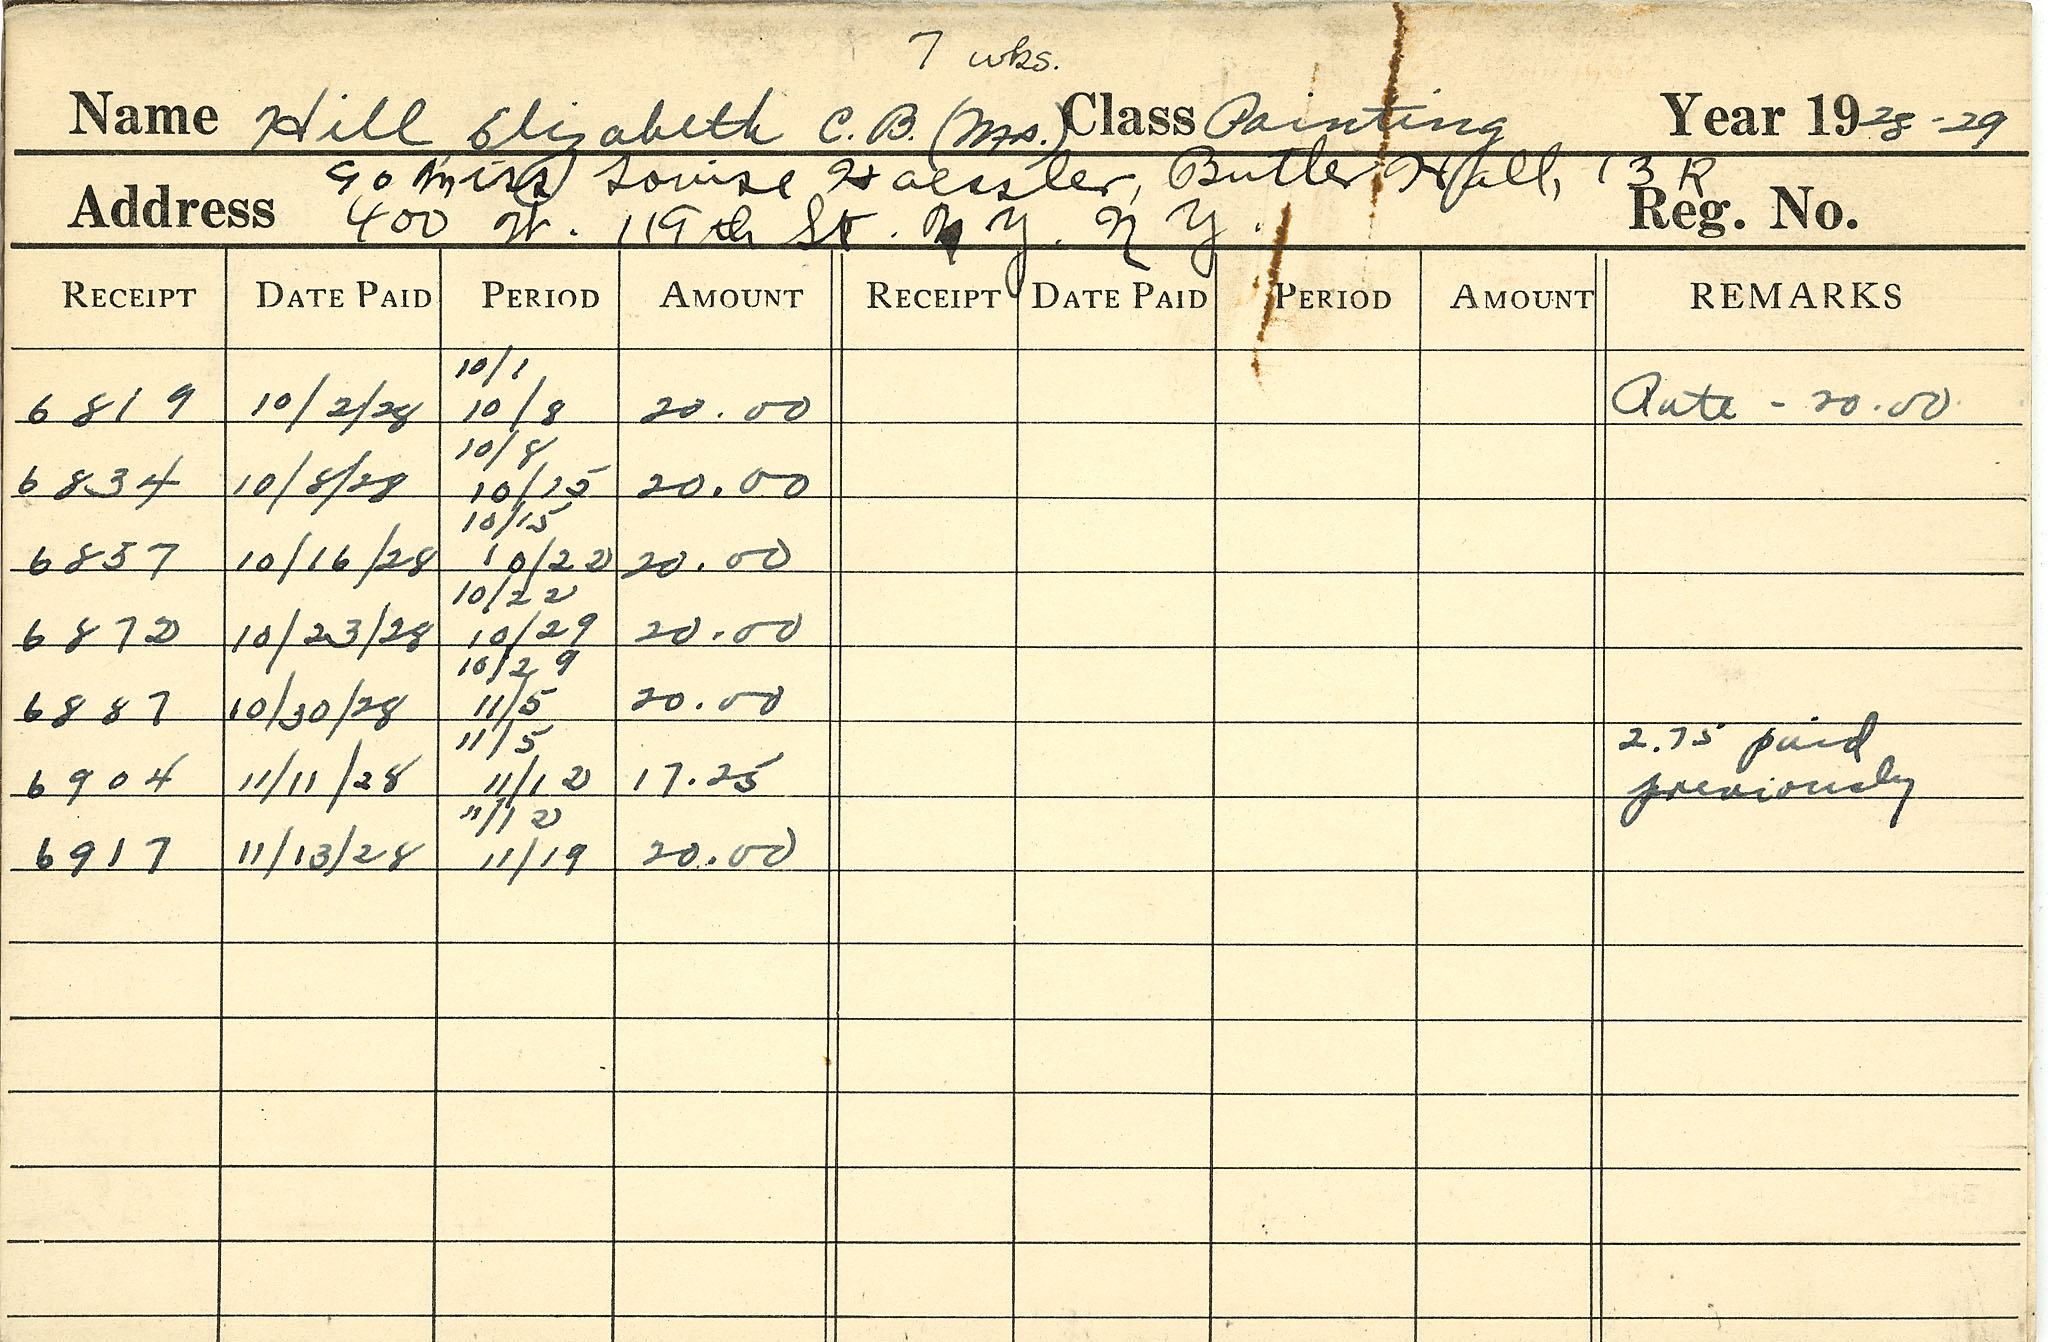 7 wks.
Name Hill Elizabeth C. B. (Mrs.) Class Painting Year 1928-29
c/o Miss Louise Haessler, Butler Hall, 13 R
Address 400 W. 119th St. N. Y. N Y. Reg. No.
RECEIPT DATE PAID PERIOD AMOUNT RECEIPT DATE PAID PERIOD AMOUNT REMARKS
10/1
6819 10/2/28 10/8 20.00 Rate - 20.00
10/8
6834 10/8/28 10/15 20.00
10/15
6857 10/16/28 10/22 20.00
10/22
6872 10/23/28 10/29 20.00
10/29
6887 10/30/28 11/5 20.00
11/5 2.75 paid
6904 11/11/28 11/12 17.25 previously
11/12
6917 11/13/28 11/19 20.00